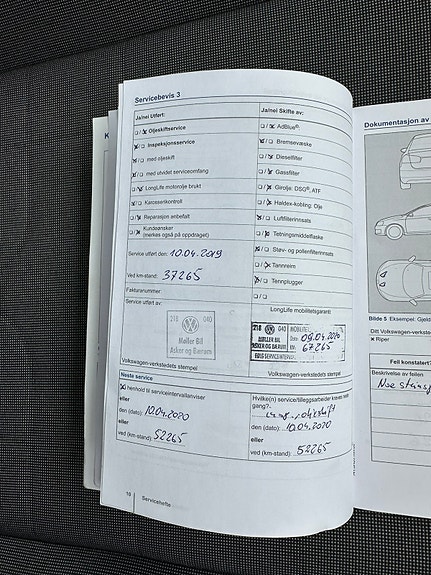 Servicebevis 3
Ja/nei Utført:
Ja/nei Skifte av:
Oljeskiftservice
AdBlue®:
Inspeksjonsservice
Bremsevæske
med oljeskift
Dieselfilter
med utvidet serviceomfang
Gassfilter
LongLife motorolje brukt
Girolje: DSG®, ATF
Karosserikontroll
Haldex-kobling: Olje
Reparasjon anbefalt
Luftfilterinnsats
Kundeønsker
(merkes også på oppdraget)
Tetningsmiddelflaske
Service utført den: 10.04.2019
Støv- og pollenfilterinnsats
Ved km-stand: 37265
Tannreim
Fakturanummer
Tennplugger
Service utført av:
LongLife mobilitetsgaranti
218 040
Møller Bil
Asker og Bærum
218 040
MØLLER BIL
ASKER OG BÆRUM
MOBILITET
Dato 09.04.2020
KM: 67265
Volkswagen-verkstedets stempel
Volkswagen-verkstedets stempel
Neste service
henhold til serviceintervallanviser
eller
den (dato): 10.04.2020
eller
ved (km-stand): 52265
Hvilke(n) service/tilleggsarbeider kreves neste
gang?
oljeskift
den (dato): 10.04.2020
eller
ved (km-stand): 52265
10 Servicehefte
Dokumentasjon av
Bilde 5 Eksempel:
Ditt Volkswagen-verksted
Riper
Feil konstatert?
Beskrivelse av feilen
Noe